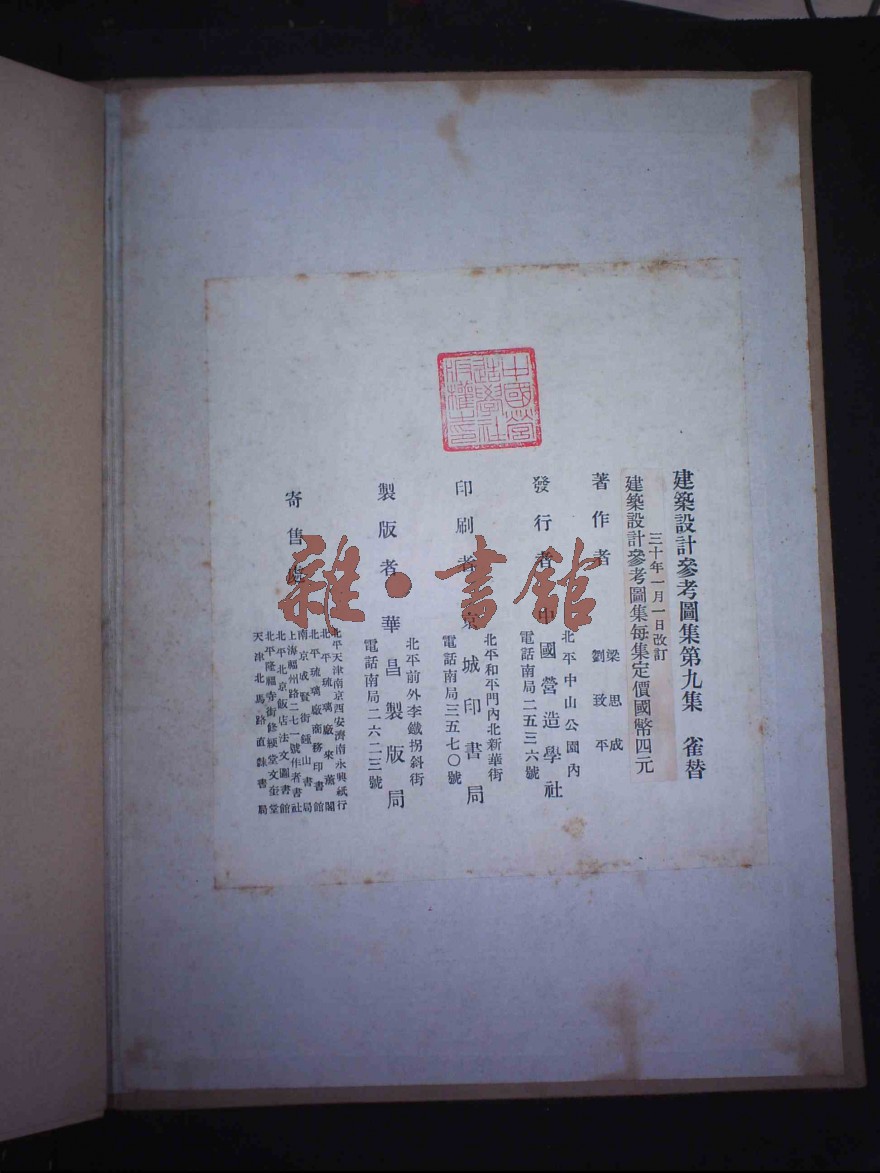 建築設計參考圖集第九集　雀替
三十年一月一日改訂
建築設計參考圖集每集定價國幣四元
著作者
梁思成
劉致平
發行者　中國營造學社
北平中山公園內
電話南局二五三六號
印刷者　京城印書局
北平和平門內北新華街
電話南局三五七〇號
製版者　華昌製版局
北平前外李鐵拐斜街
電話南局二六二三號
寄售處
北平天津南京西安濟南永興祇行
北平琉璃廠來薰閣
北平琉璃廠商務印書館
南京成賢街鍾山書局
上海福州路二七一號作者書社
北平北京飯店法文圖書館
北平隆福寺街修綆堂文奎堂
天津北馬路直隸書局
中國營造學社版權之印
雜·書館